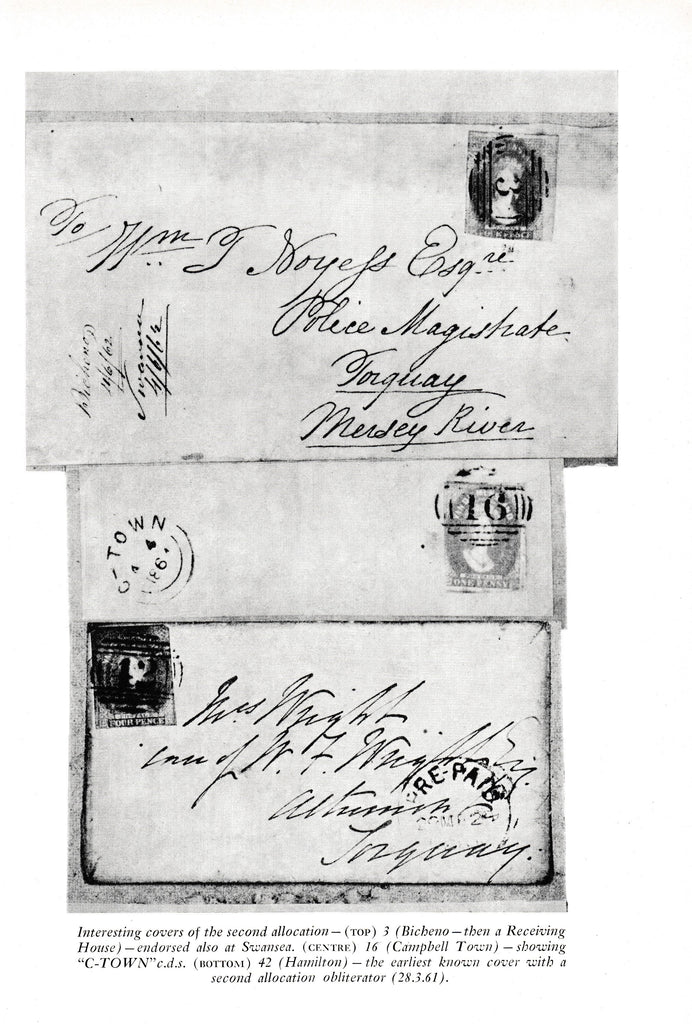 3
FOUR PENCE
To
Wm T Noyess Esqre
Police Magistrate
Torquay
Mersey River
Bicheno
4/6/62
Swansea
4/6/62
C-TOWN
186
16
POSTAGE
ONE PENNY
42
FOUR PENCE
Mrs Wright
care of W. F. Wright Esq.
PRE-PAID
Torquay.
Interesting covers of the second allocation — (TOP) 3 (Bicheno — then a Receiving
House) — endorsed also at Swansea. (CENTRE) 16 (Campbell Town) — showing
“C-TOWN” c.d.s. (BOTTOM) 42 (Hamilton) — the earliest known cover with a
second allocation obliterator (28.3.61).